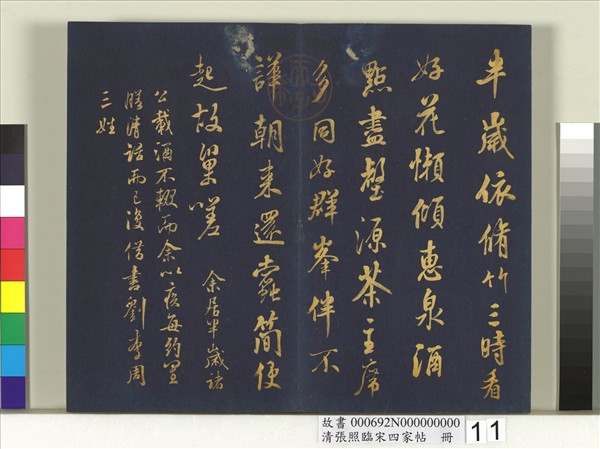 半歲依脩竹三時看
好花懶傾惠泉酒
點盡壑源茶主席
多同好群峯伴不
譁朝來還蠹簡便
起故巢嗟 余居半歲諸
公載酒不輟而余以疾每約置
膳清話而已復借書劉李周
三姓
故書 000692N000000000
清張照臨宋四家帖 冊
11